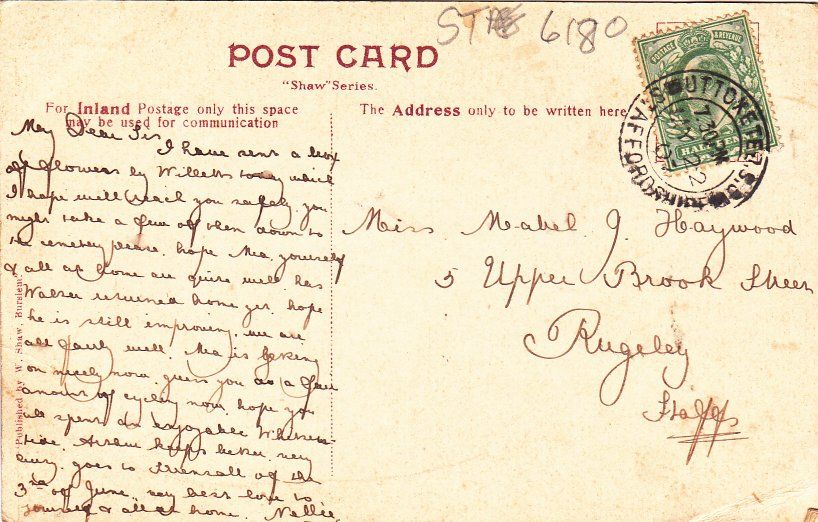 STA 6180
POST CARD
"Shaw" Series.
For Inland Postage only this space
may be used for communication
The Address only to be written here
POSTAGE & REVENUE
HALF
UTTOXETER
7.30PM
22
07
STAFFORDSHIRE
My Dear Sis
I have sent a box
of flowers by Willetts today which
I hope will reach you safely you
might take a few of them down to
the cemetery please. hope Ma, yourself
& all at home are quite well has
Walter returned home yet. hope
he is still improving. we are
all fairly well. Ma is
on nicely now. guess you do a fair
amount of cycling now, hope you
all spent an enjoyable Whitsun-
tide. Arthur keeps better, very
busy. goes to of the
3rd of June. very best love to
yourself & all at home. Nellie.
Miss Mabel J. Haywood
5 Upper Brook Street
Rugeley
Staffs
Published by W. Shaw, Burslem.